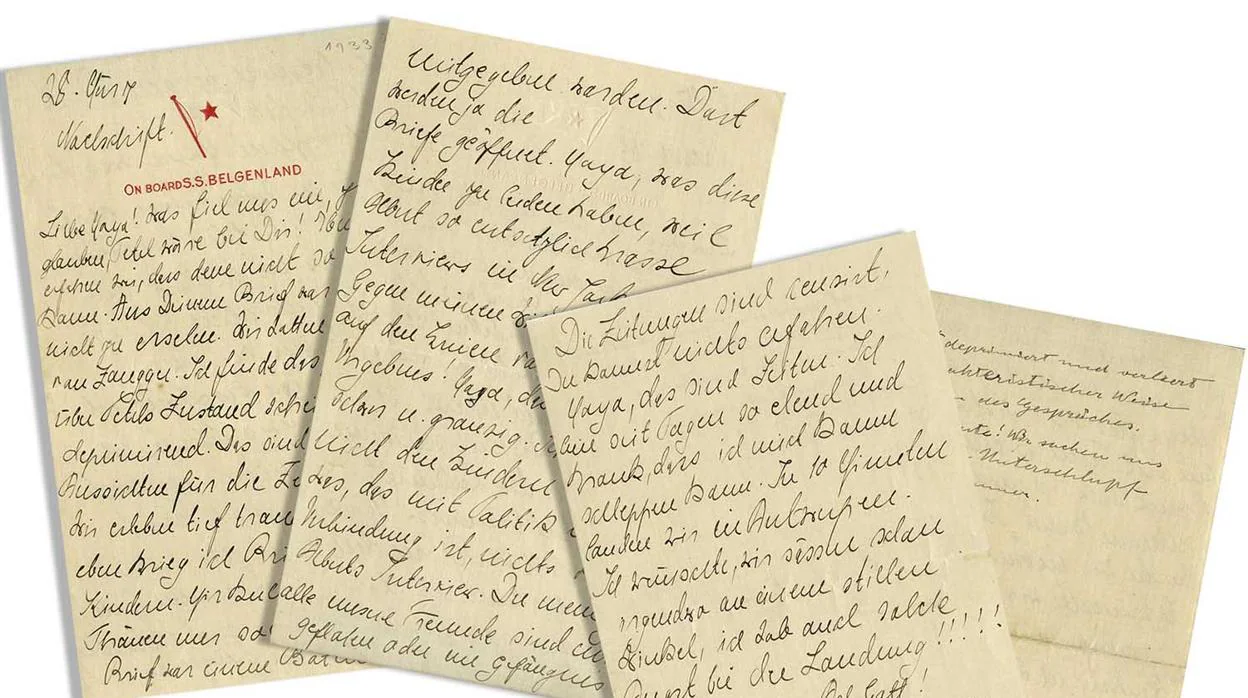 1933
28. März
Nachschrift.
ON BOARD S.S. BELGENLAND
Liebe Maja! Was fiel uns ein,
glauben, Tetel wäre bei Dir!
dass dene nicht so
kann. Aus Deinem Brief war
nicht zu ersehen. Wir hatten
von Zangger. Ich finde das
über Tetels Zustand
deprimirend. Das sind
Aussichten für die
Wir erleben tief
eben krieg ich
Kindern.
Thränen
Brief war einem
mitgegeben worden. Dort
werden ja die
Briefe geöffnet. Maja, was diese
Kinder zu leiden haben, weil
Albert so entsetzlich krasse
Interviews in
Gegen meinen
auf den Knieen
Vergebens! Maja,
u. grauzig.
nicht den Kindern
das mit Politik
Verbindung ist, nichts
Alberts Interview. Die
alle unsere Freunde sind
geflohen oder im Gefängnis
Die Zeitungen sind censirt,
Du kannst nichts erfahren.
Maja, das sind Zeiten. Ich
bin seit Tagen so elend und
krank, dass ich mich kaum
schleppen kann. In 10 Minuten
landen wir in Antwerpen.
Ich wünschte, wir sässen schon
irgendwo an einem stillen
Winkel, ich hab auch solche
Angst bei der Landung!!!!!
Gott!
deprimiert und verleert
akteristischer Weise
des Gespräches.
Wir suchen uns
Unterschlupf